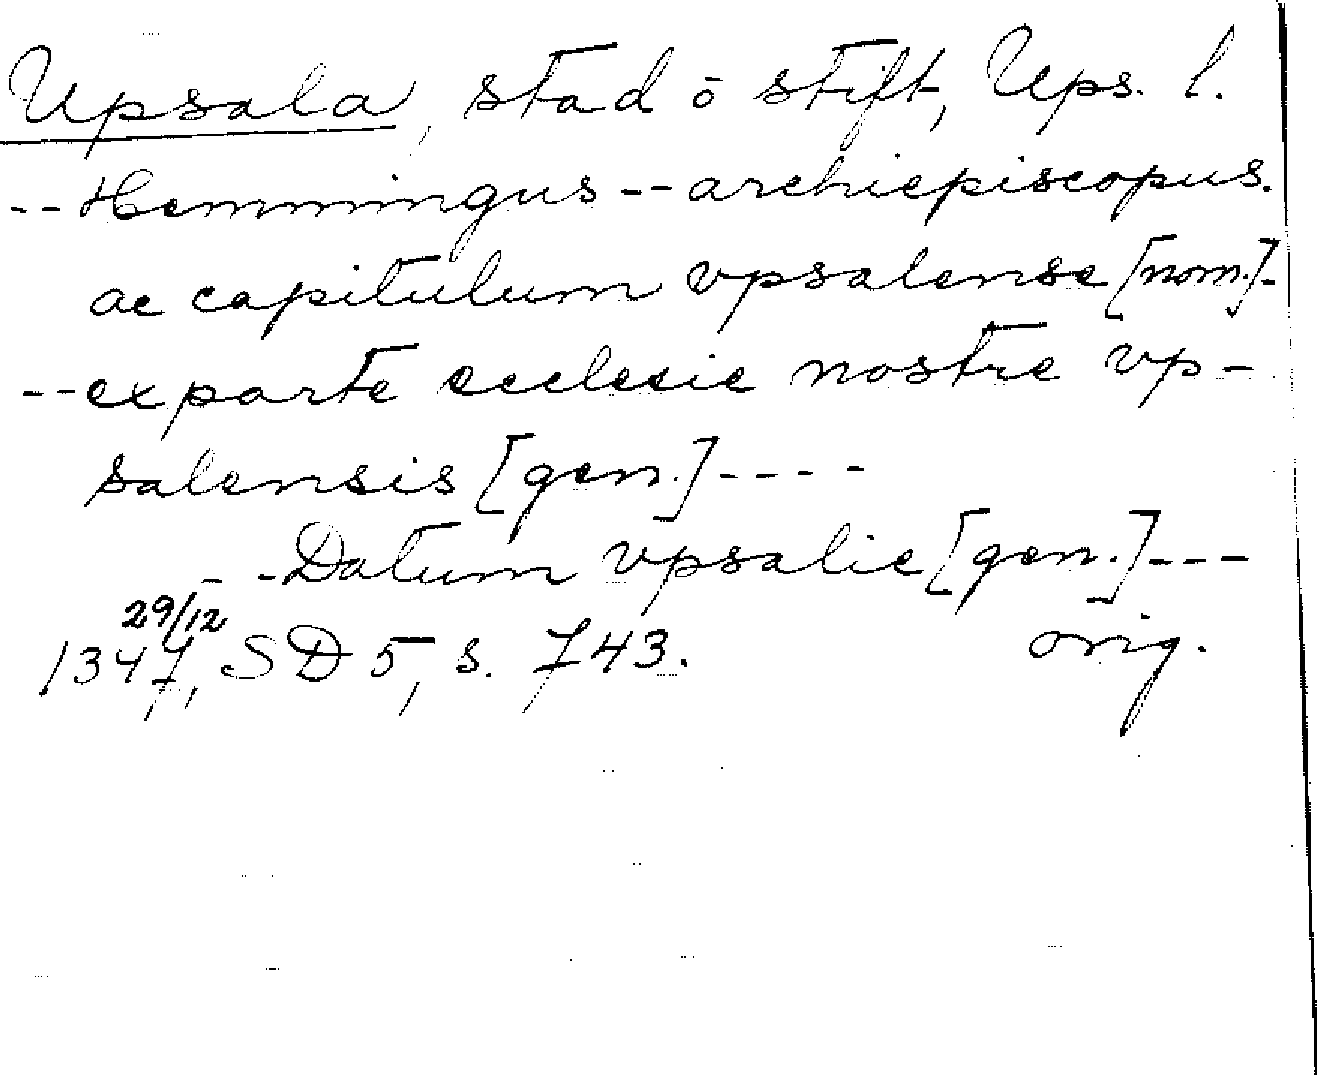 Upsala, stad ō stift, Ups. l.
-- Hemmingus -- archiepiscopus.
ac capitulum vpsalense [nom.]-
-- ex parte ecclesie nostre vp-
salensis [gen.] ----
- - Datum vpsalie [gen.] ---
29/12
1347, SD 5, s. 743. orig.